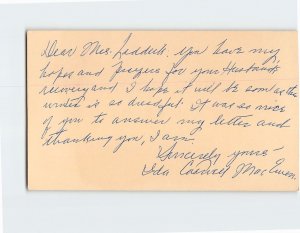 Dear Mrs. Leddick. You have my
hopes and prayers for your Husbands
recovery and I hope it will be soon as the
is so dreadful. It was so nice
of you to answer my letter and
thanking you, I am.
Sincerely yours -
Ida Mac Ewen.